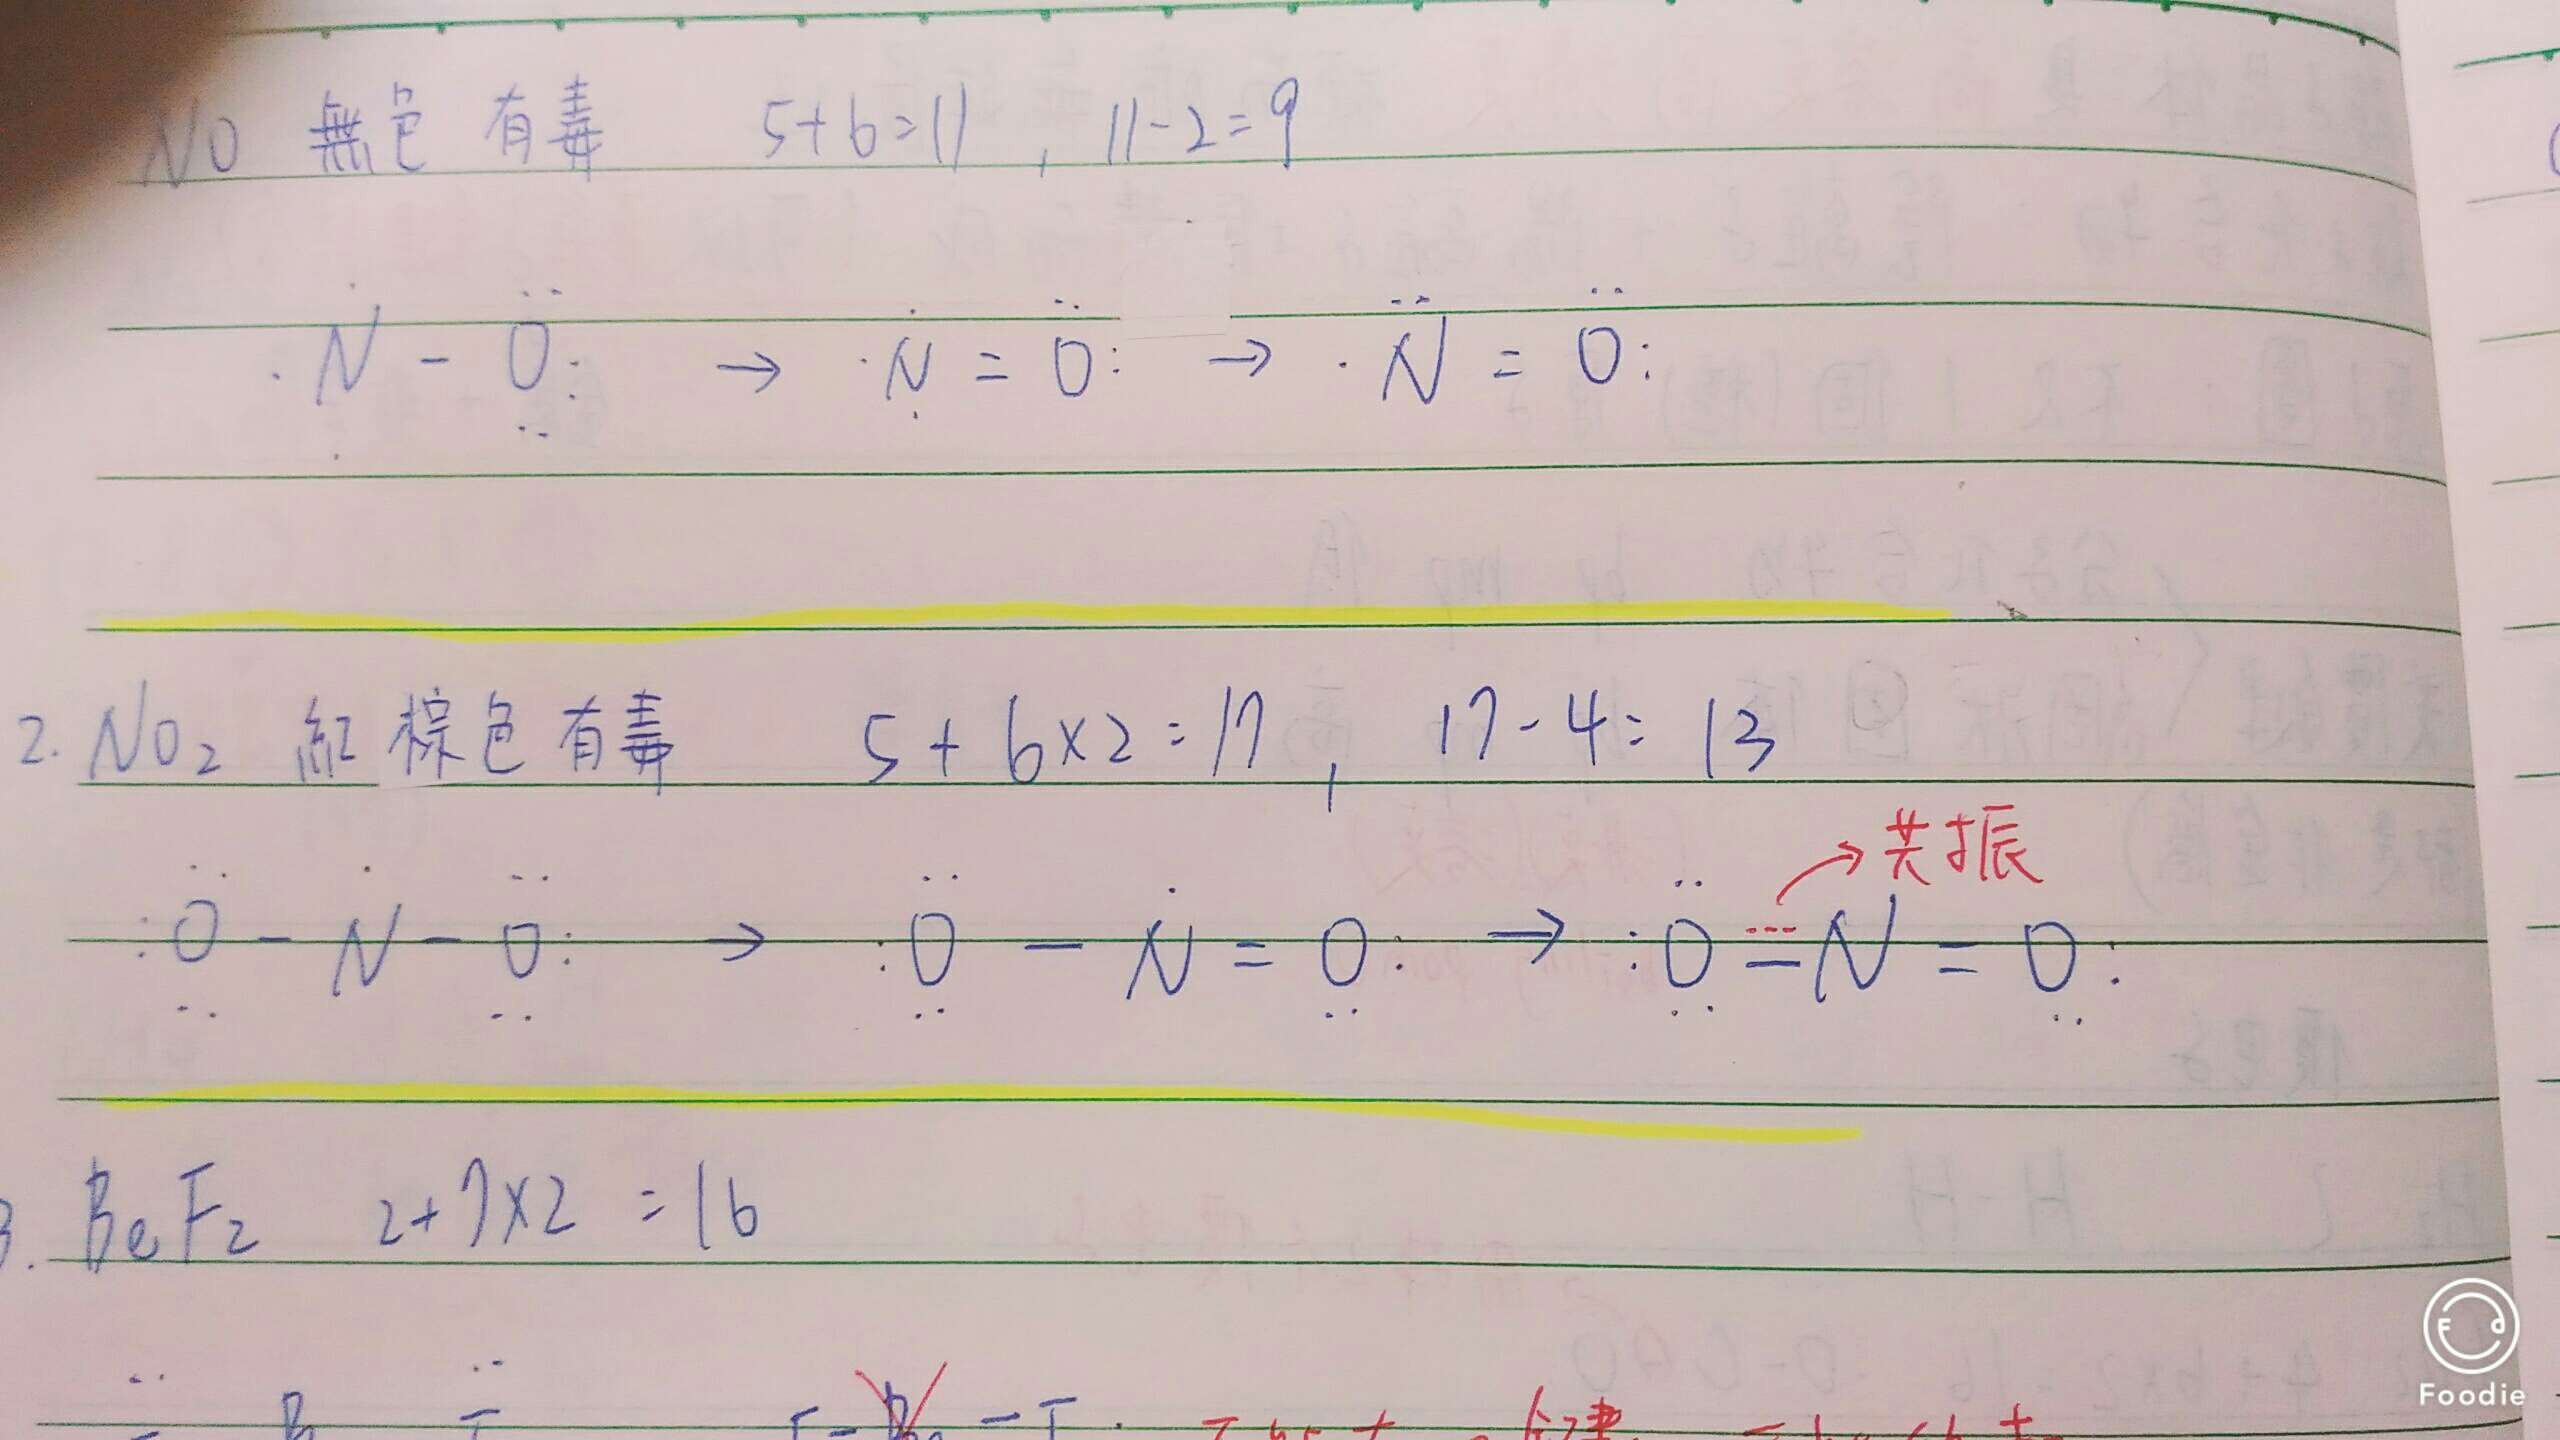 NO 無色 有毒 5+6=11 , 11-2=9
·N-O: → ·N=O: → ·N=O:
2. NO₂ 紅棕色有毒 5+6×2=17 , 17-4=13
共振
:O-N-O: → :O-N=O: → :O=N=O:
3. BeF₂ 2+7×2=16
Foodie